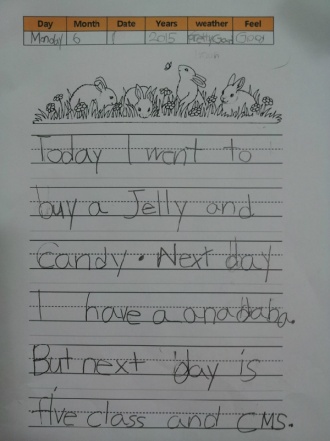 Day Month Date Years weather Feel
Monday 6 1 2015 Good
Today I went to
buy a Jelly and
Candy. Next day
I have a anadaba.
But next day is
five class and CMS.